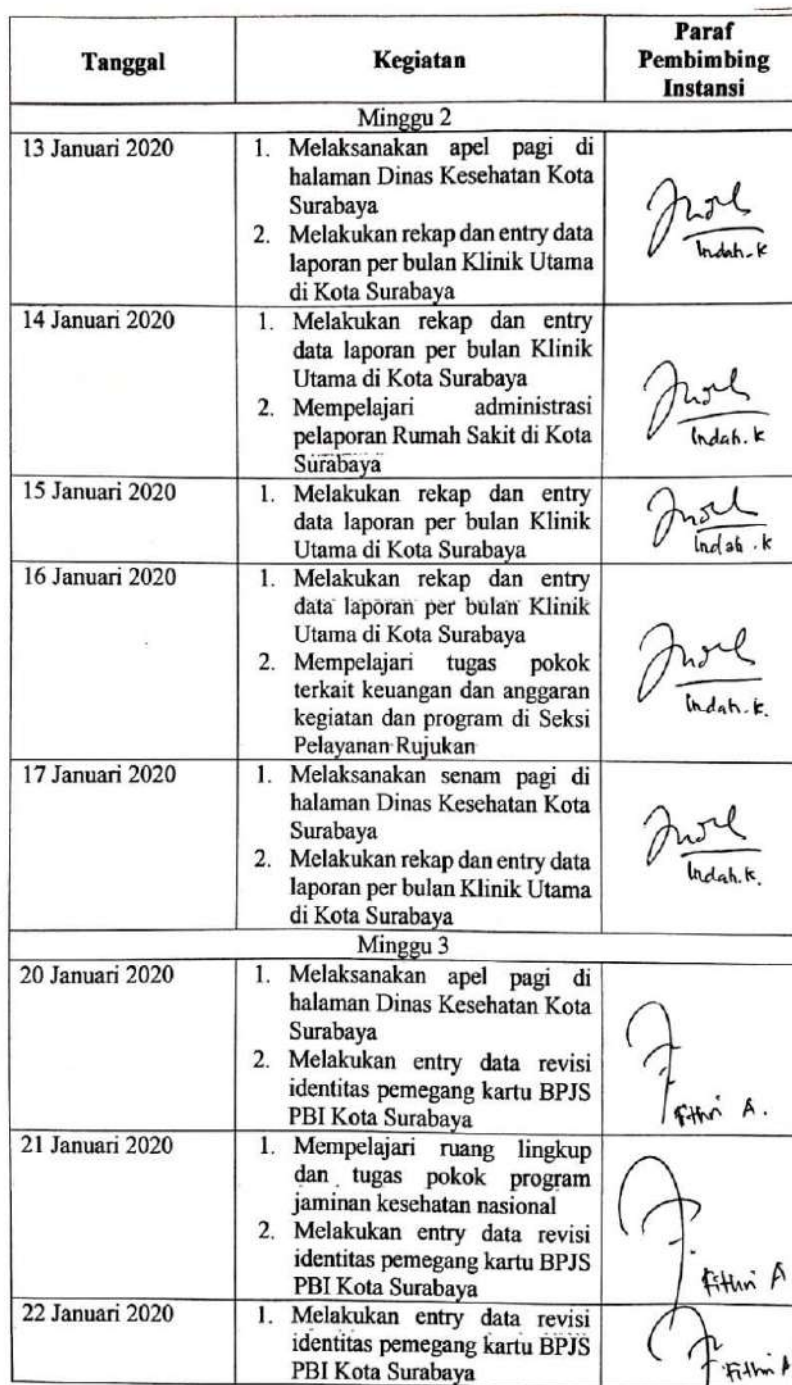 Tanggal
Kegiatan
Paraf
Pembimbing
Instansi
Minggu 2
13 Januari 2020
1. Melaksanakan apel pagi di
halaman Dinas Kesehatan Kota
Surabaya
2. Melakukan rekap dan entry data
laporan per bulan Klinik Utama
di Kota Surabaya
Indah.k
14 Januari 2020
1. Melakukan rekap dan entry
data laporan per bulan Klinik
Utama di Kota Surabaya
2. Mempelajari administrasi
pelaporan Rumah Sakit di Kota
Surabaya
Indah.k
15 Januari 2020
1. Melakukan rekap dan entry
data laporan per bulan Klinik
Utama di Kota Surabaya
Indah.k
16 Januari 2020
1. Melakukan rekap dan entry
data laporan per bulan Klinik
Utama di Kota Surabaya
2. Mempelajari tugas pokok
terkait keuangan dan anggaran
kegiatan dan program di Seksi
Pelayanan Rujukan
Indah.k.
17 Januari 2020
1. Melaksanakan senam pagi di
halaman Dinas Kesehatan Kota
Surabaya
2. Melakukan rekap dan entry data
laporan per bulan Klinik Utama
di Kota Surabaya
Indah.k.
Minggu 3
20 Januari 2020
1. Melaksanakan apel pagi di
halaman Dinas Kesehatan Kota
Surabaya
2. Melakukan entry data revisi
identitas pemegang kartu BPJS
PBI Kota Surabaya
Fithri A.
21 Januari 2020
1. Mempelajari ruang lingkup
dan tugas pokok program
jaminan kesehatan nasional
2. Melakukan entry data revisi
identitas pemegang kartu BPJS
PBI Kota Surabaya
Fithri A
22 Januari 2020
1. Melakukan entry data revisi
identitas pemegang kartu BPJS
PBI Kota Surabaya
Fithri A